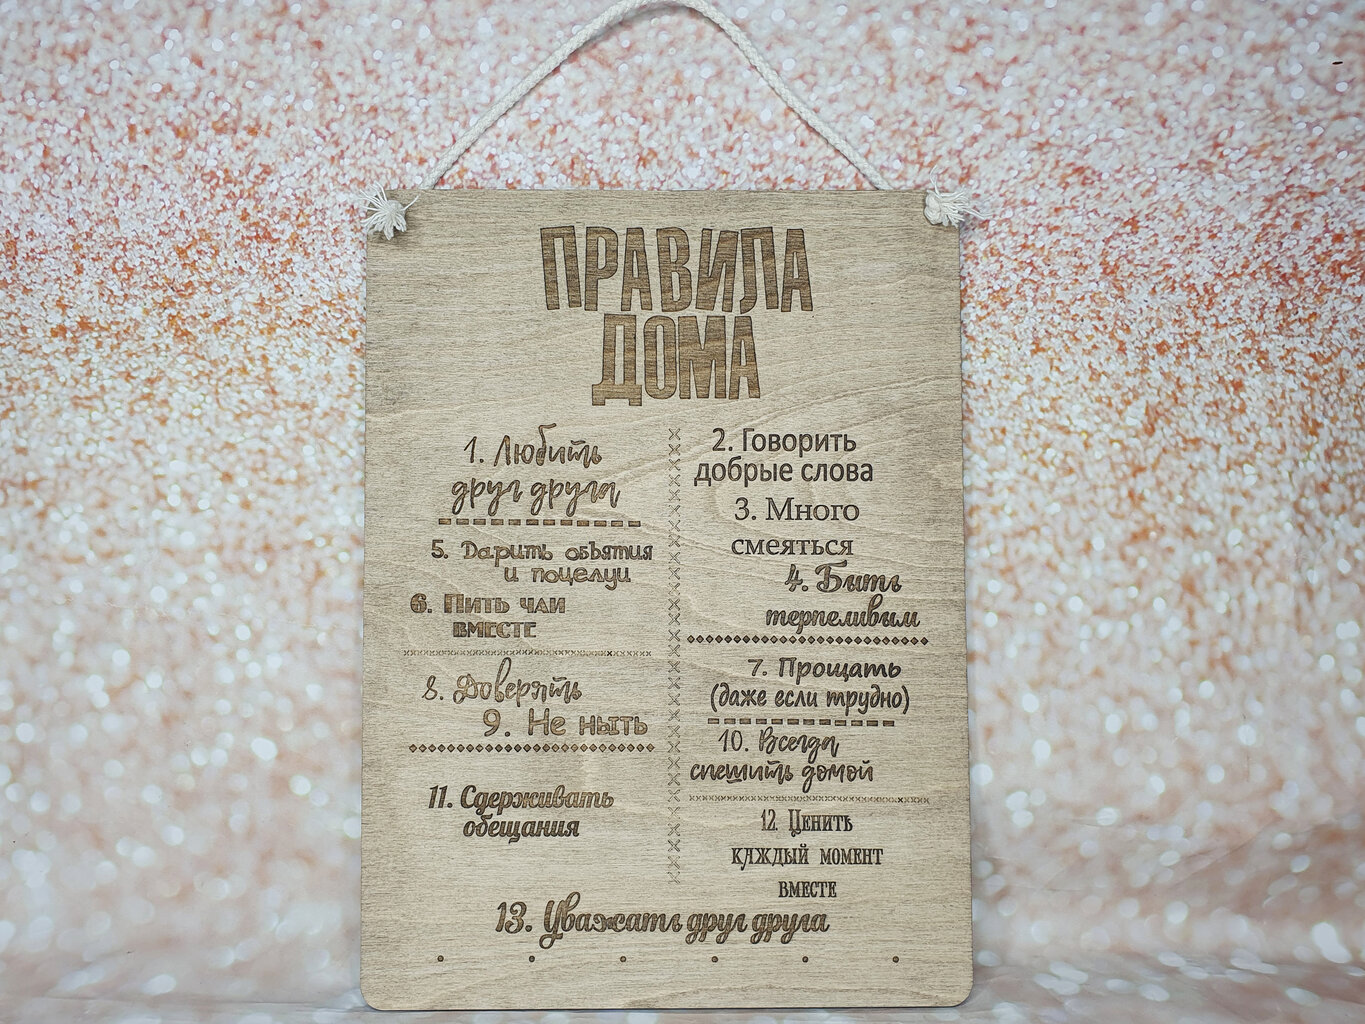 ПРАВИЛА
ДОМА
1. Любить
друг друга
2. Говорить
добрые слова
3. Много
смеяться
4. Быть
терпеливым
5. Дарить объятия
и поцелуи
6. Пить чай
вместе
7. Прощать
(даже если трудно)
8. Доверять
9. Не ныть
10. Всегда
спешить домой
11. Сдерживать
обещания
12. Ценить
каждый момент
вместе
13. Уважать друг друга